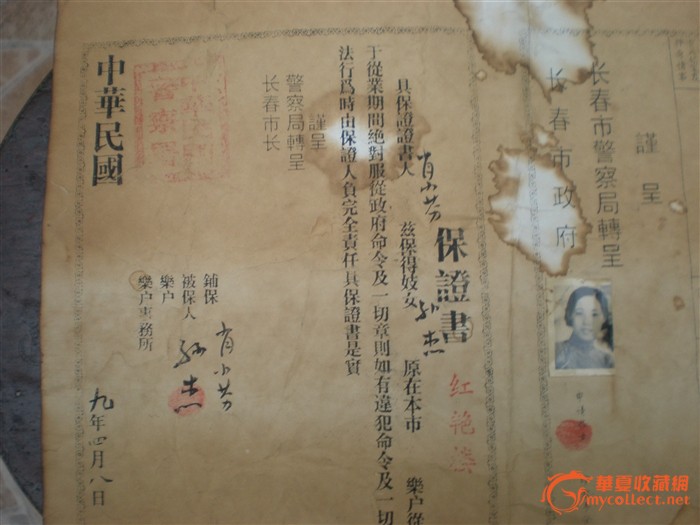 謹呈
长春市警察局轉呈
长春市政府
保證書
红艳楼
具保證書人 肖小芳 茲保得妓女 孙杰 原在本市 樂户從
于從業期間絕對服從政府命令及一切章則如有違犯命令及一切
法行爲時由保證人負完全責任具保證書是實
謹呈
警察局轉呈
长春市长
鋪保 肖小芳
被保人 孙杰
樂户
樂户事務所
中華民國 九年四月八日
華夏收藏網
mycollect.net